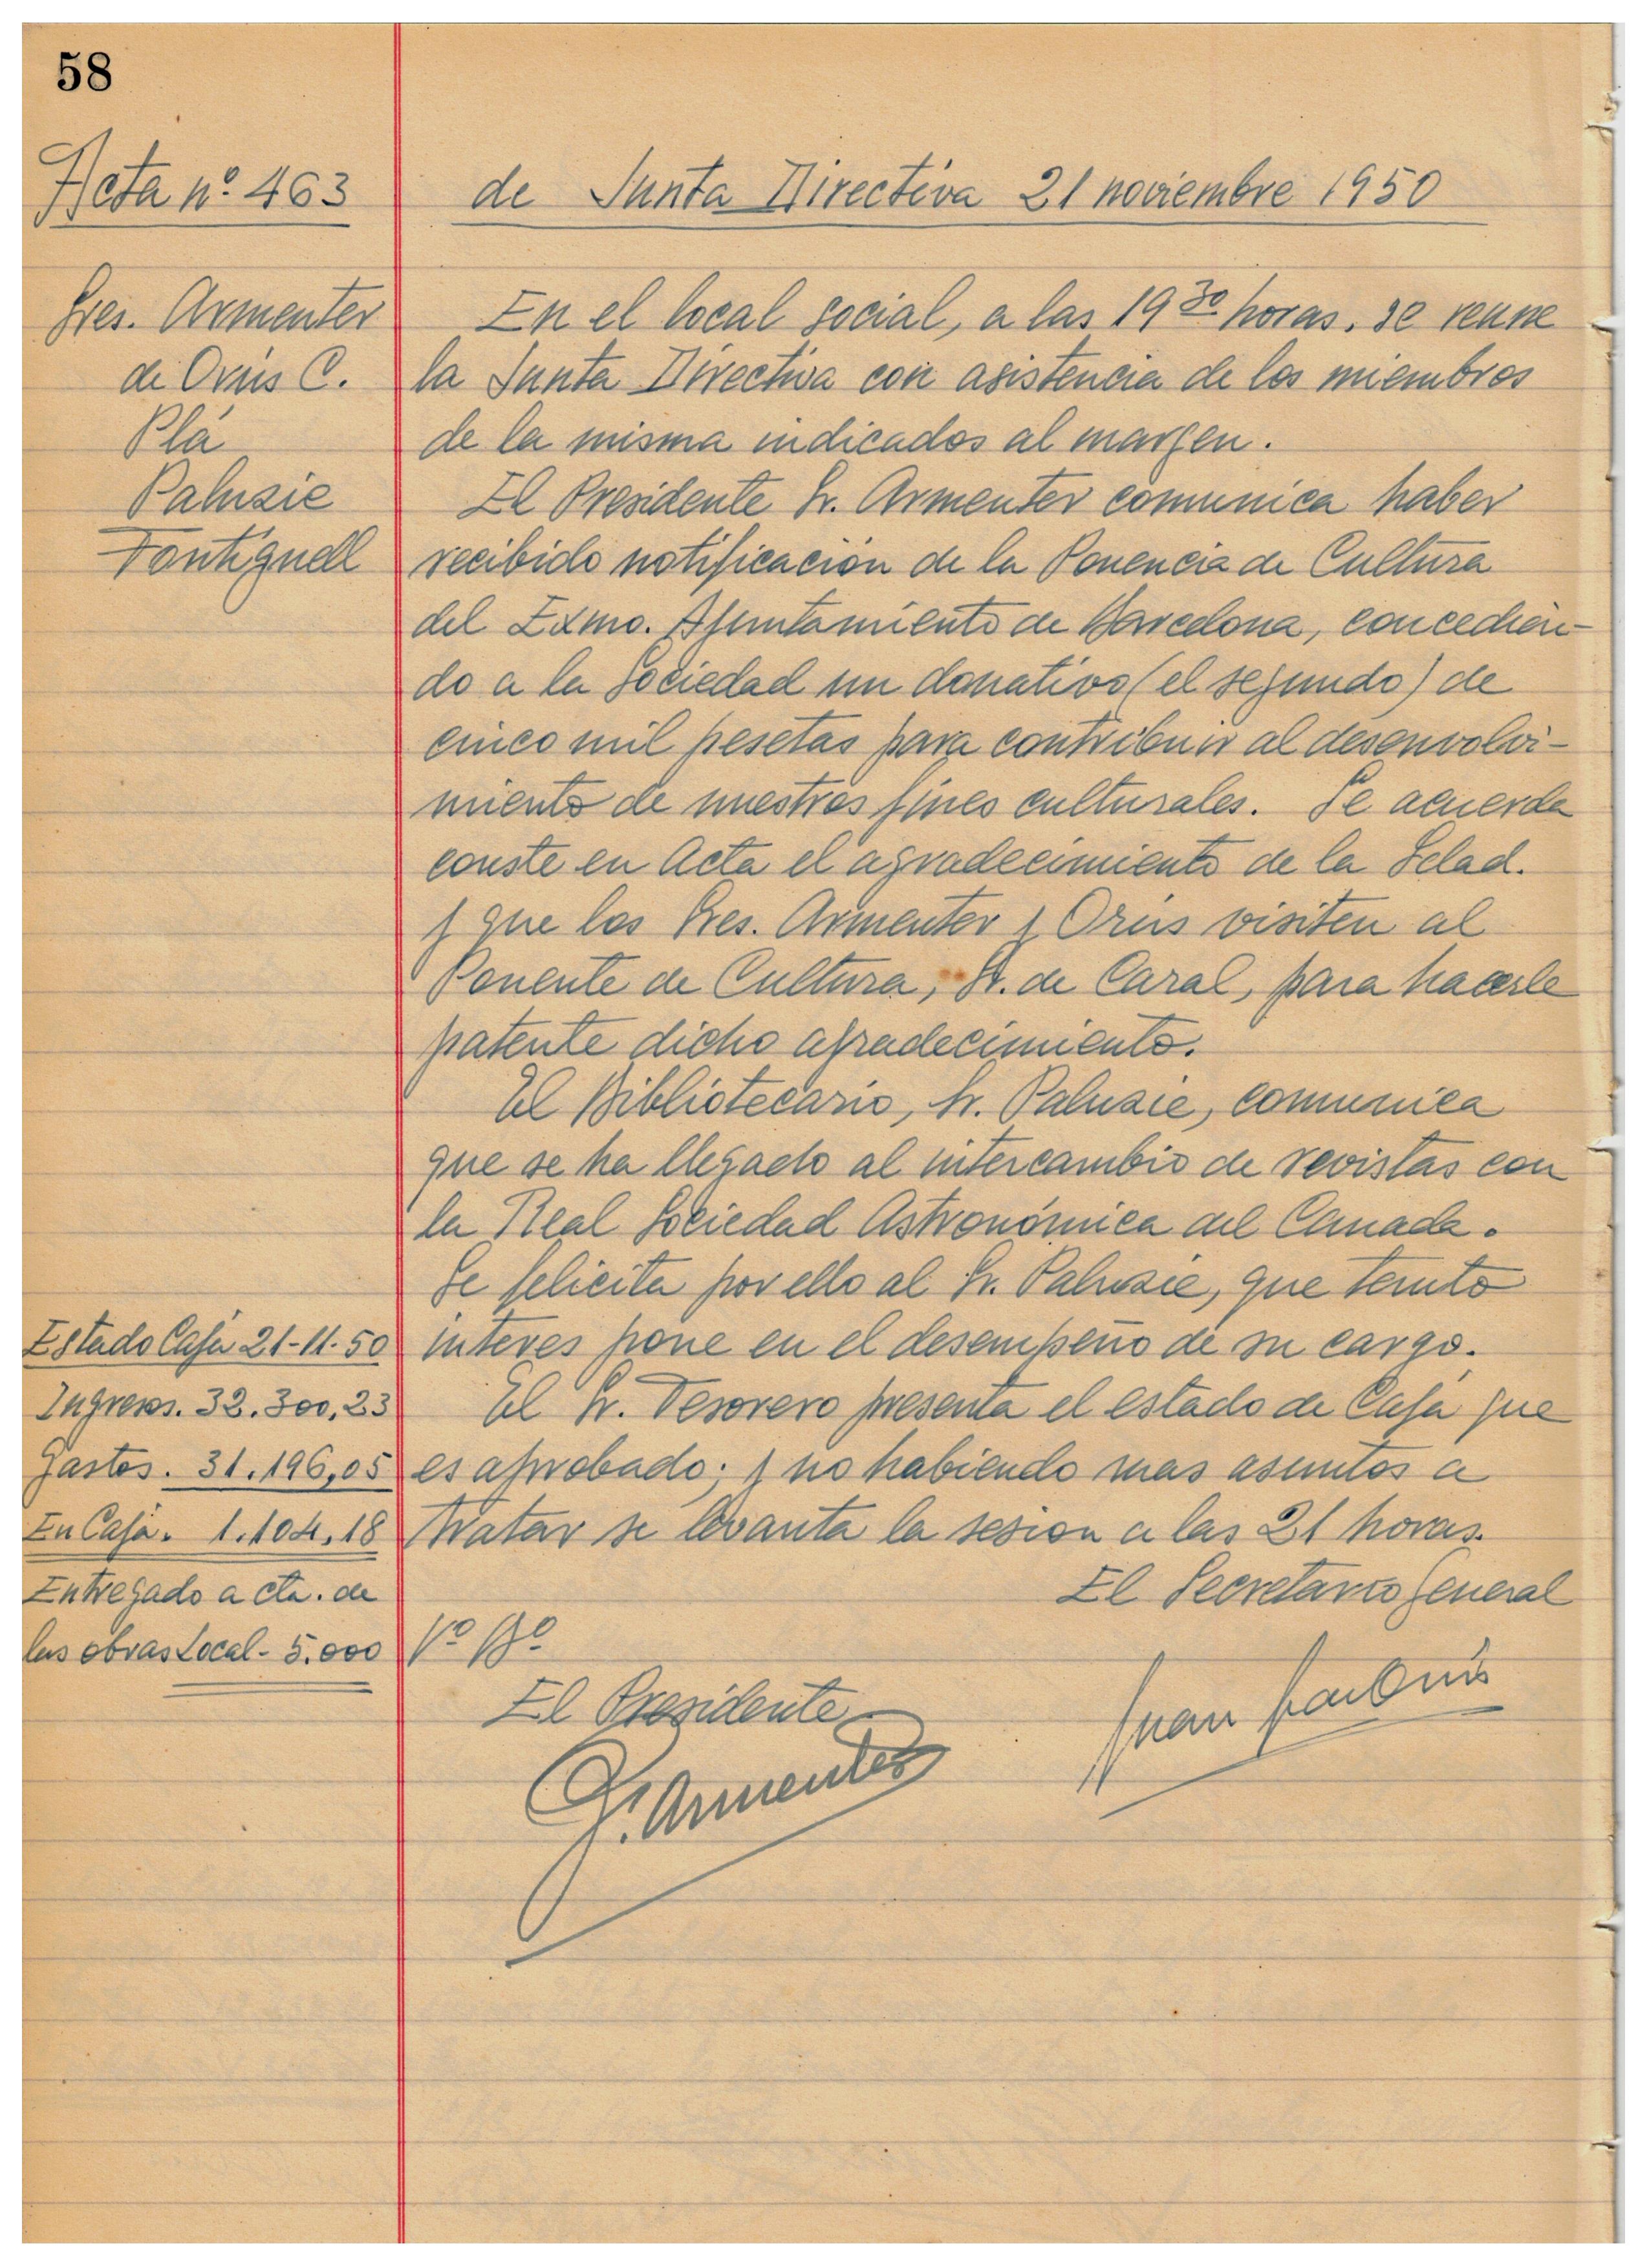 58
Acta nº 463
de Junta Directiva 21 noviembre 1950
Sres. Armenter
de Orús C.
Plá
Paluzie
Fontquell
En el local social, a las 19 30 horas, se reune
la Junta Directiva con asistencia de los miembros
de la misma indicados al margen.
El Presidente Sr. Armenter comunica haber
recibido notificación de la Ponencia de Cultura
del Exmo. Ayuntamiento de Barcelona, concedien-
do a la Sociedad un donativo (el segundo) de
cinco mil pesetas para contribuir al desenvolvi-
miento de nuestros fines culturales. Se acuerda
conste en Acta el agradecimiento de la Sdad.
y que los Sres. Armenter y Orús visiten al
Ponente de Cultura, Sr. de Caral, para hacerle
patente dicho agradecimiento.
El Bibliotecario, Sr. Paluzie, comunica
que se ha llegado al intercambio de revistas con
la Real Sociedad Astronómica del Canada.
Se felicita por ello al Sr. Paluzie, que tanto
interes pone en el desempeño de su cargo.
El Sr. Tesorero presenta el estado de Caja que
es aprobado; y no habiendo mas asuntos a
tratar se levanta la sesion a las 21 horas.
Estado Caja 21-11-50
Ingresos. 32.300,23
Gastos. 31.196,05
En Caja. 1.104,18
Entregado a cta. de
las obras Local - 5.000
El Secretario General
Vº Bº
El Presidente
Juan Orús
J. Armenter